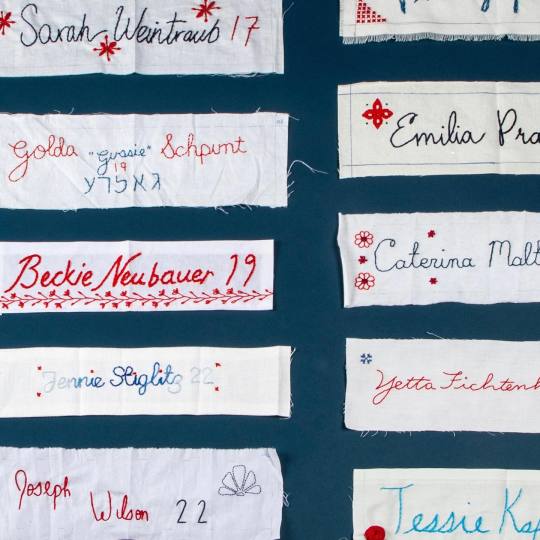 Sarah Weintraub 17
Golda "Gussie" Schpunt
19
גאלדע
Beckie Neubauer 19
Jennie Stiglitz 22
Joseph
Wilson 22
Emilia Pra
Caterina Malt
Yetta Fichten
Tessie Ka